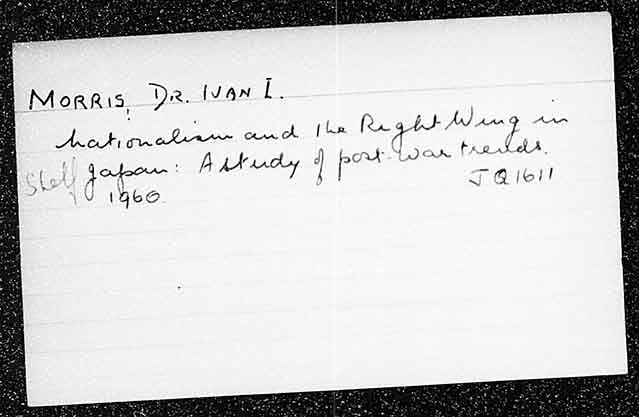 MORRIS, DR. IVAN I.
Nationalism and the Right Wing in
Shelf Japan: A study of post-war trends.
1960. JQ1611